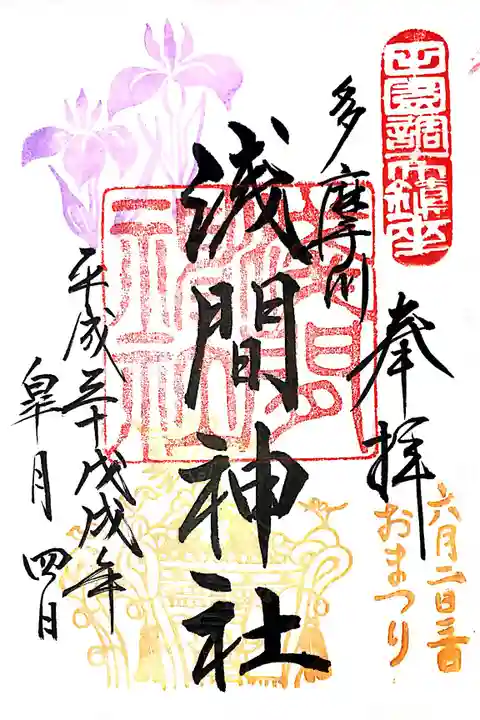 田園調布鎮座
奉拝
六月二日三日
おまつり
多摩川
浅間神社
平成三十戊戌年
皐月 四日